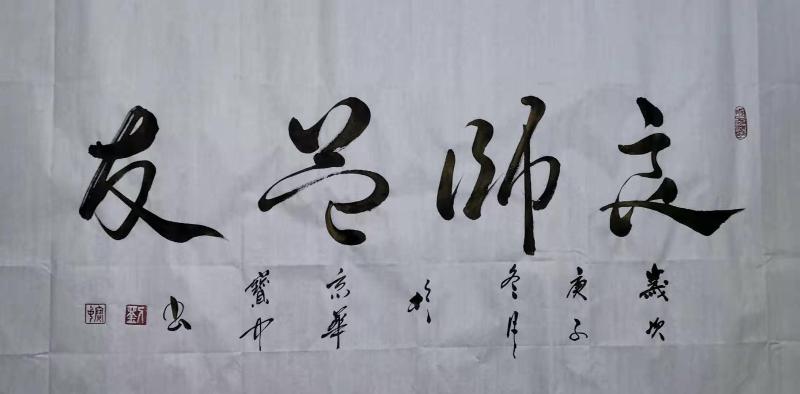 良師益友
歲次
庚子
冬月
於
京華
寶中
書
劉